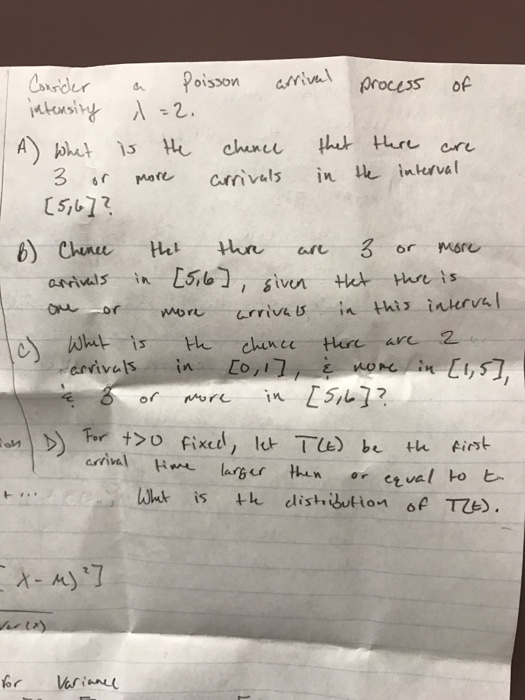 Consider a Poisson arrival process of
intensity λ = 2.
A) What is the chance that there are
3 or more arrivals in the interval
[5,6]?
B) Chance that there are 3 or more
arrivals in [5,6], given that there is
one or more arrivals in this interval
C) What is the chance there are 2
arrivals in [0,1], & none in [1,5],
& 3 or more in [5,6]?
D) For t>0 fixed, let T(t) be the first
arrival time larger then or equal to t.
What is the distribution of T(t).
[x-μ)²]
Var(x)
for Variance